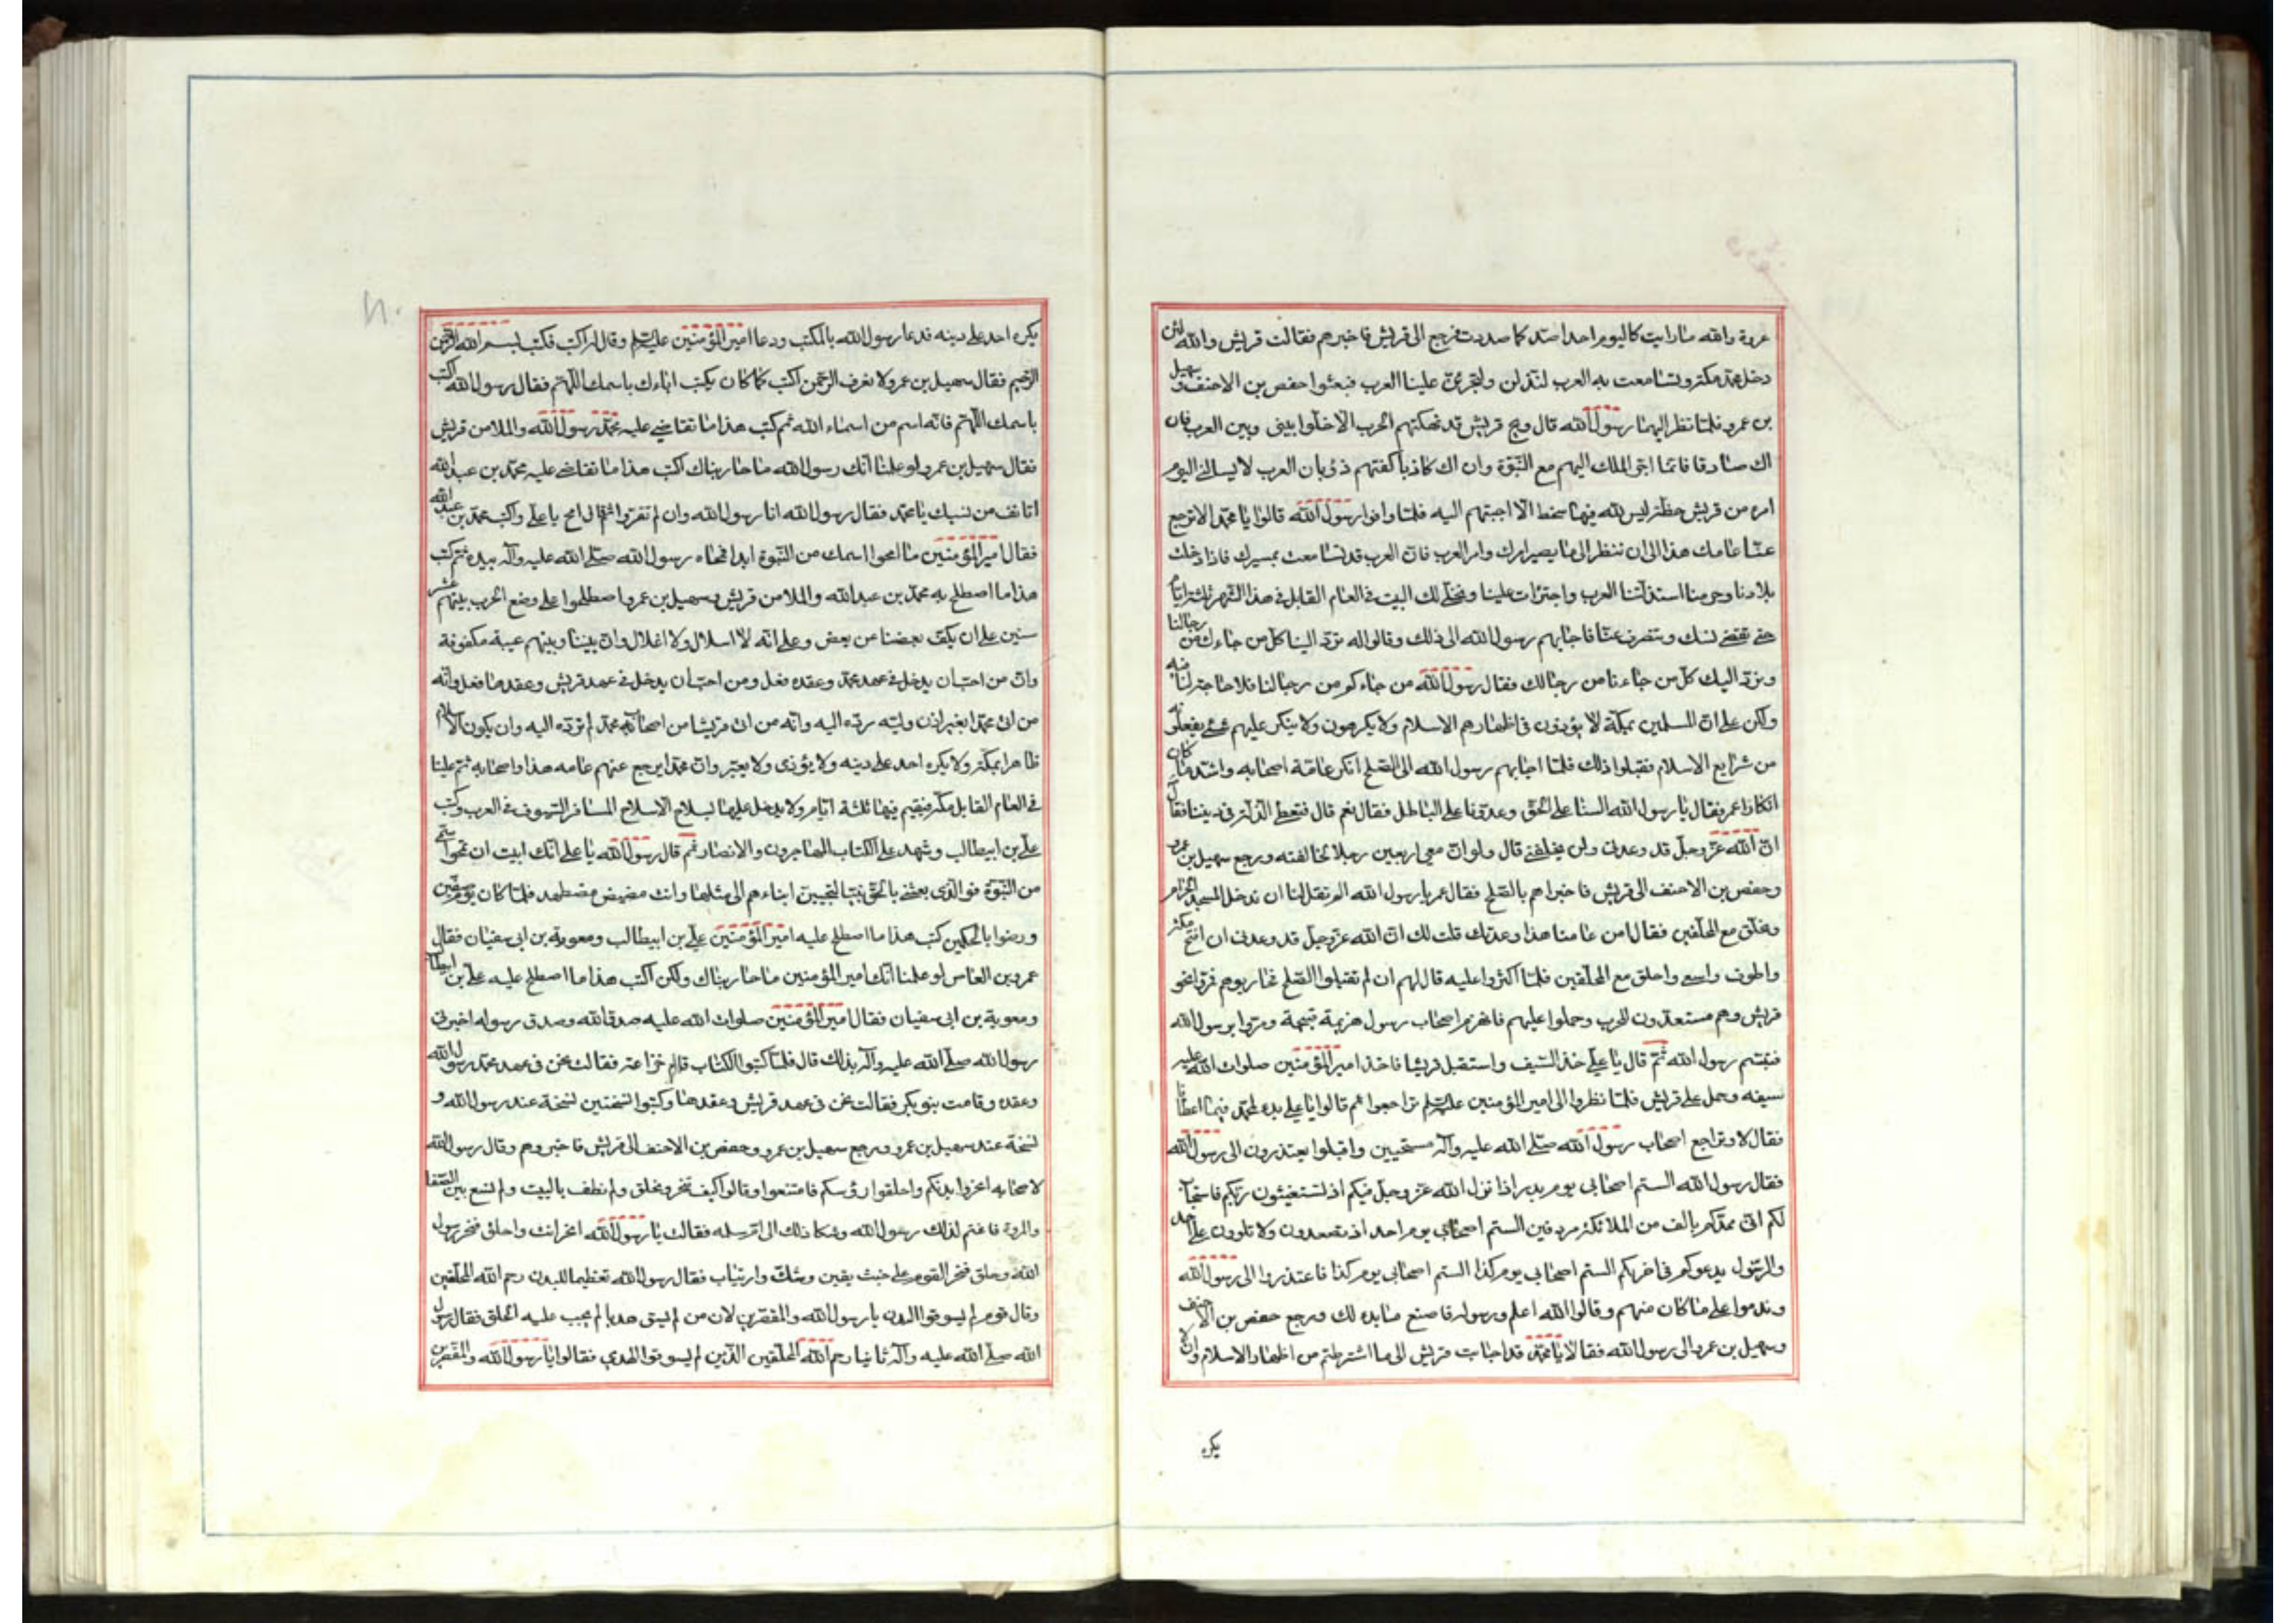 عروة والله ما رايت كاليوم احدا صد كما صددت فرجع الى قريش فاخبرهم فقالت قريش والله لئن
دخل محمد مكة وتسامعت به العرب لنذلن ولتجرئن علينا العرب فبعثوا حفص بن الاحنف وسهيل
بن عمرو فلما نظر اليهما رسول الله قال ويح قريش قد نهكتهم الحرب الا خلوا بيني وبين العرب فان
اك صادقا فانما اجر الملك اليهم مع النبوة وان اك كاذبا كفتهم ذؤبان العرب لا يسالني اليوم
امرء من قريش خطة ليس لله فيها سخط الا اجبتهم اليه فلما وافوا رسول الله قالوا يا محمد الا ترجع
عنا عامك هذا الى ان ننظر الى ما يصير امرك وامر العرب فان العرب قد تسامعت بمسيرك فاذا دخلت
بلادنا وحرمنا استذلتنا العرب واجترأت علينا ونخلي لك البيت في العام القابل في هذا الشهر ثلثة ايام
حتى تقضي نسكك وتنصرف عنا فاجابهم رسول الله الى ذلك وقالوا له ترد الينا كل من جاءك من رجالنا
ونرد اليك كل من جاءنا من رجالك فقال رسول الله من جاءكم من رجالنا فلا حاجة لنا فيه
ولكن على ان المسلمين بمكة لا يؤذون في اظهارهم الاسلام ولا يكرهون ولا ينكر عليهم شئ يفعلونه
من شرايع الاسلام فقبلوا ذلك فلما اجابهم رسول الله الى الصلح انكر عامة اصحابه واشد ما كان
انكارا عمر فقال يا رسول الله السنا على الحق وعدونا على الباطل فقال نعم قال فنعطي الذلة في ديننا فقال
ان الله عز وجل قد وعدني ولن يخلفني قال ولو ان معي اربعين رجلا لخالفته ورجع سهيل بن عمرو
وحفص بن الاحنف الى قريش فاخبراهم بالصلح فقال عمر يا رسول الله الم تقل لنا ان ندخل المسجد الحرام
ونحلق مع المحلقين فقال امن عامنا هذا وعدتك قلت لك ان الله عز وجل قد وعدني ان افتح مكة
واطوف واسعى واحلق مع المحلقين فلما اكثروا عليه قال لهم ان لم تقبلوا الصلح فحاربوهم فمروا نحو
قريش وهم مستعدون للحرب وحملوا عليهم فانهزم اصحاب رسول هزيمة قبيحة ومروا برسول الله
فتبسم رسول الله ثم قال يا علي خذ السيف واستقبل قريشا فاخذ امير المؤمنين صلوات الله عليه
سيفه وحمل على قريش فلما نظروا الى امير المؤمنين عليه السلم تراجعوا ثم قالوا يا علي بدا لمحمد فيما اعطانا
فقال لا وتراجع اصحاب رسول الله صلى الله عليه وآله مستحيين واقبلوا يعتذرون الى رسول الله
فقال رسول الله الستم اصحابي يوم بدر اذا نزل الله عز وجل فيكم اذ تستغيثون ربكم فاستجاب
لكم اني ممدكم بالف من الملائكة مردفين الستم اصحابي يوم احد اذ تصعدون ولا تلوون على احد
والرسول يدعوكم في اخريكم الستم اصحابي يوم كذا الستم اصحابي يوم كذا فاعتذروا الى رسول الله
وندموا على ما كان منهم وقالوا الله اعلم ورسوله فاصنع ما بدا لك ورجع حفص بن الاحنف
وسهيل بن عمرو الى رسول الله فقالا يا محمد قد اجابت قريش الى ما اشترطتم من اظهار الاسلام وان لا
يكره
يكره احد على دينه فدعا رسول الله بالمكتب ودعا امير المؤمنين عليه السلم وقال له اكتب فكتب بسم الله الرحمن
الرحيم فقال سهيل بن عمرو لا نعرف الرحمن اكتب كما كان يكتب اباءك باسمك اللهم فقال رسول الله اكتب
باسمك اللهم فانه اسم من اسماء الله ثم كتب هذا ما تقاضي عليه محمد رسول الله والملا من قريش
فقال سهيل بن عمرو لو علمنا انك رسول الله ما حاربناك اكتب هذا ما تقاضي عليه محمد بن عبد الله
اتانف من نسبك يا محمد فقال رسول الله انا رسول الله وان لم تقروا ثم قال امح يا علي واكتب محمد بن عبد الله
فقال امير المؤمنين ما امحوا اسمك من النبوة ابدا فمحاه رسول الله صلى الله عليه وآله بيده ثم كتب
هذا ما اصطلح به محمد بن عبد الله والملا من قريش وسهيل بن عمرو اصطلحوا على وضع الحرب بينهم عشر
سنين على ان يكف بعضنا عن بعض وعلى انه لا اسلال ولا اغلال وان بيننا وبينهم عيبة مكفوفة
وان من احب ان يدخل في عهد محمد وعقده فعل ومن احب ان يدخل في عهد قريش وعقدها فعل وانه
من اتى محمدا بغير اذن وليه يرده اليه وانه من اتى قريشا من اصحاب محمد لم ترده اليه وان يكون الاسلام
ظاهرا بمكة ولا يكره احد على دينه ولا يؤذى ولا يعير وان محمدا يرجع عنهم عامه هذا واصحابه ثم علينا
في العام القابل مكة فيقيم فيها ثلثة ايام ولا يدخل عليها بسلاح الا سلاح المسافر السيوف في القرب وكتب
علي بن ابيطالب وشهد على الكتاب المهاجرون والانصار ثم قال رسول الله يا علي انك ابيت ان تمحوا اسمي
من النبوة فوالذي بعثني بالحق نبيا لتجيبن ابناءهم الى مثلها وانت مضيض مضطهد فلما كان يوم صفين
ورضوا بالحكمين كتب هذا ما اصطلح عليه امير المؤمنين علي بن ابيطالب ومعوية بن ابي سفيان فقال
عمرو بن العاص لو علمنا انك امير المؤمنين ما حاربناك ولكن اكتب هذا ما اصطلح عليه علي بن ابيطالب
ومعوية بن ابي سفيان فقال امير المؤمنين صلوات الله عليه صدق الله وصدق رسوله اخبرني
رسول الله صلى الله عليه وآله بذلك قال فلما كتبوا الكتاب قام خزاعة فقالت نحن في عهد محمد رسول الله
وعقده وقامت بنو بكر فقالت نحن في عهد قريش وعقدها وكتبوا نسختين نسخة عند رسول الله و
نسخة عند سهيل بن عمرو ورجع سهيل بن عمرو وحفص بن الاحنف الى قريش فاخبروهم وقال رسول الله
لاصحابه انحروا بدنكم واحلقوا رؤسكم فامتنعوا وقالوا كيف ننحر ونحلق ولم نطف بالبيت ولم نسع بين الصفا
والمروة فاغتم لذلك رسول الله وشكا ذلك الى ام سلمه فقالت يا رسول الله انحر انت واحلق فنحر رسول
الله وحلق فنحر القوم على خبث يقين وشك وارتياب فقال رسول الله تعظيما للبدن رحم الله المحلقين
وقال قوم لم يسوقوا البدن يا رسول الله والمقصرين لان من لم يسق هديا لم يجب عليه الحلق فقال رسول
الله صلى الله عليه وآله ثانيا رحم الله المحلقين الذين لم يسوقوا الهدي فقالوا يا رسول الله والمقصرين